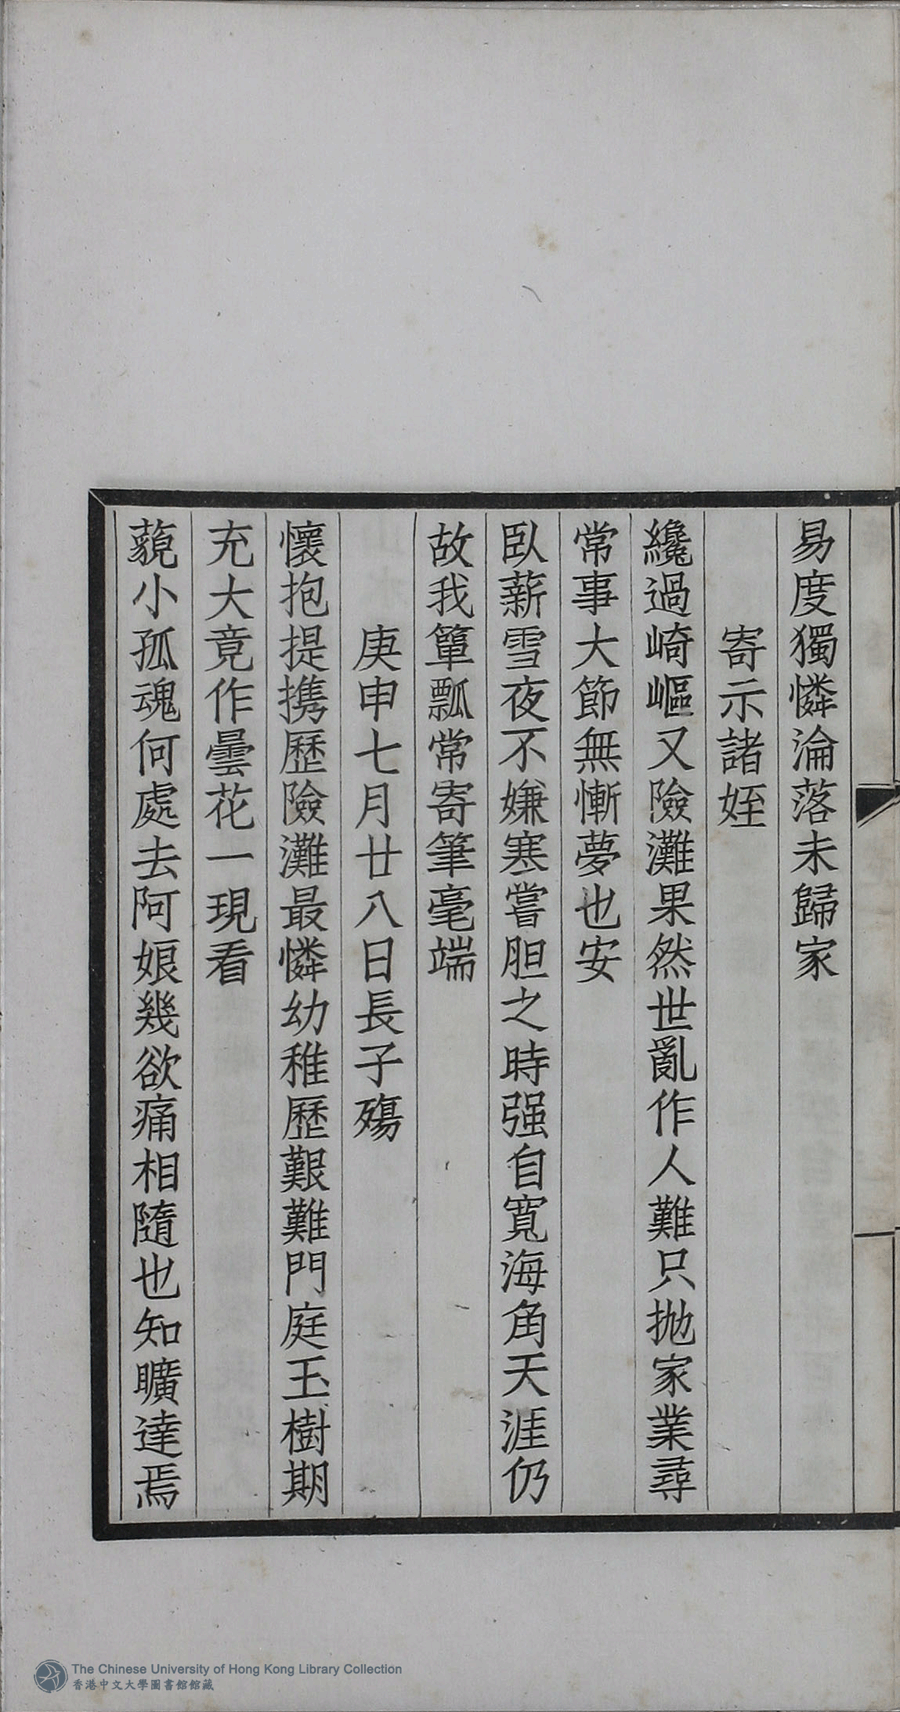 易度獨憐淪落未歸家
寄示諸姪
纔過崎嶇又險灘果然世亂作人難只拋家業尋
常事大節無慚夢也安
臥薪雪夜不嫌寒嘗胆之時强自寬海角天涯仍
故我簞瓢常寄筆毫端
庚申七月廿八日長子殤
懷抱提携歷險灘最憐幼稚歷艱難門庭玉樹期
充大竟作曇花一現看
藐小孤魂何處去阿娘幾欲痛相隨也知曠達焉
The Chinese University of Hong Kong Library Collection
香港中文大學圖書館館藏